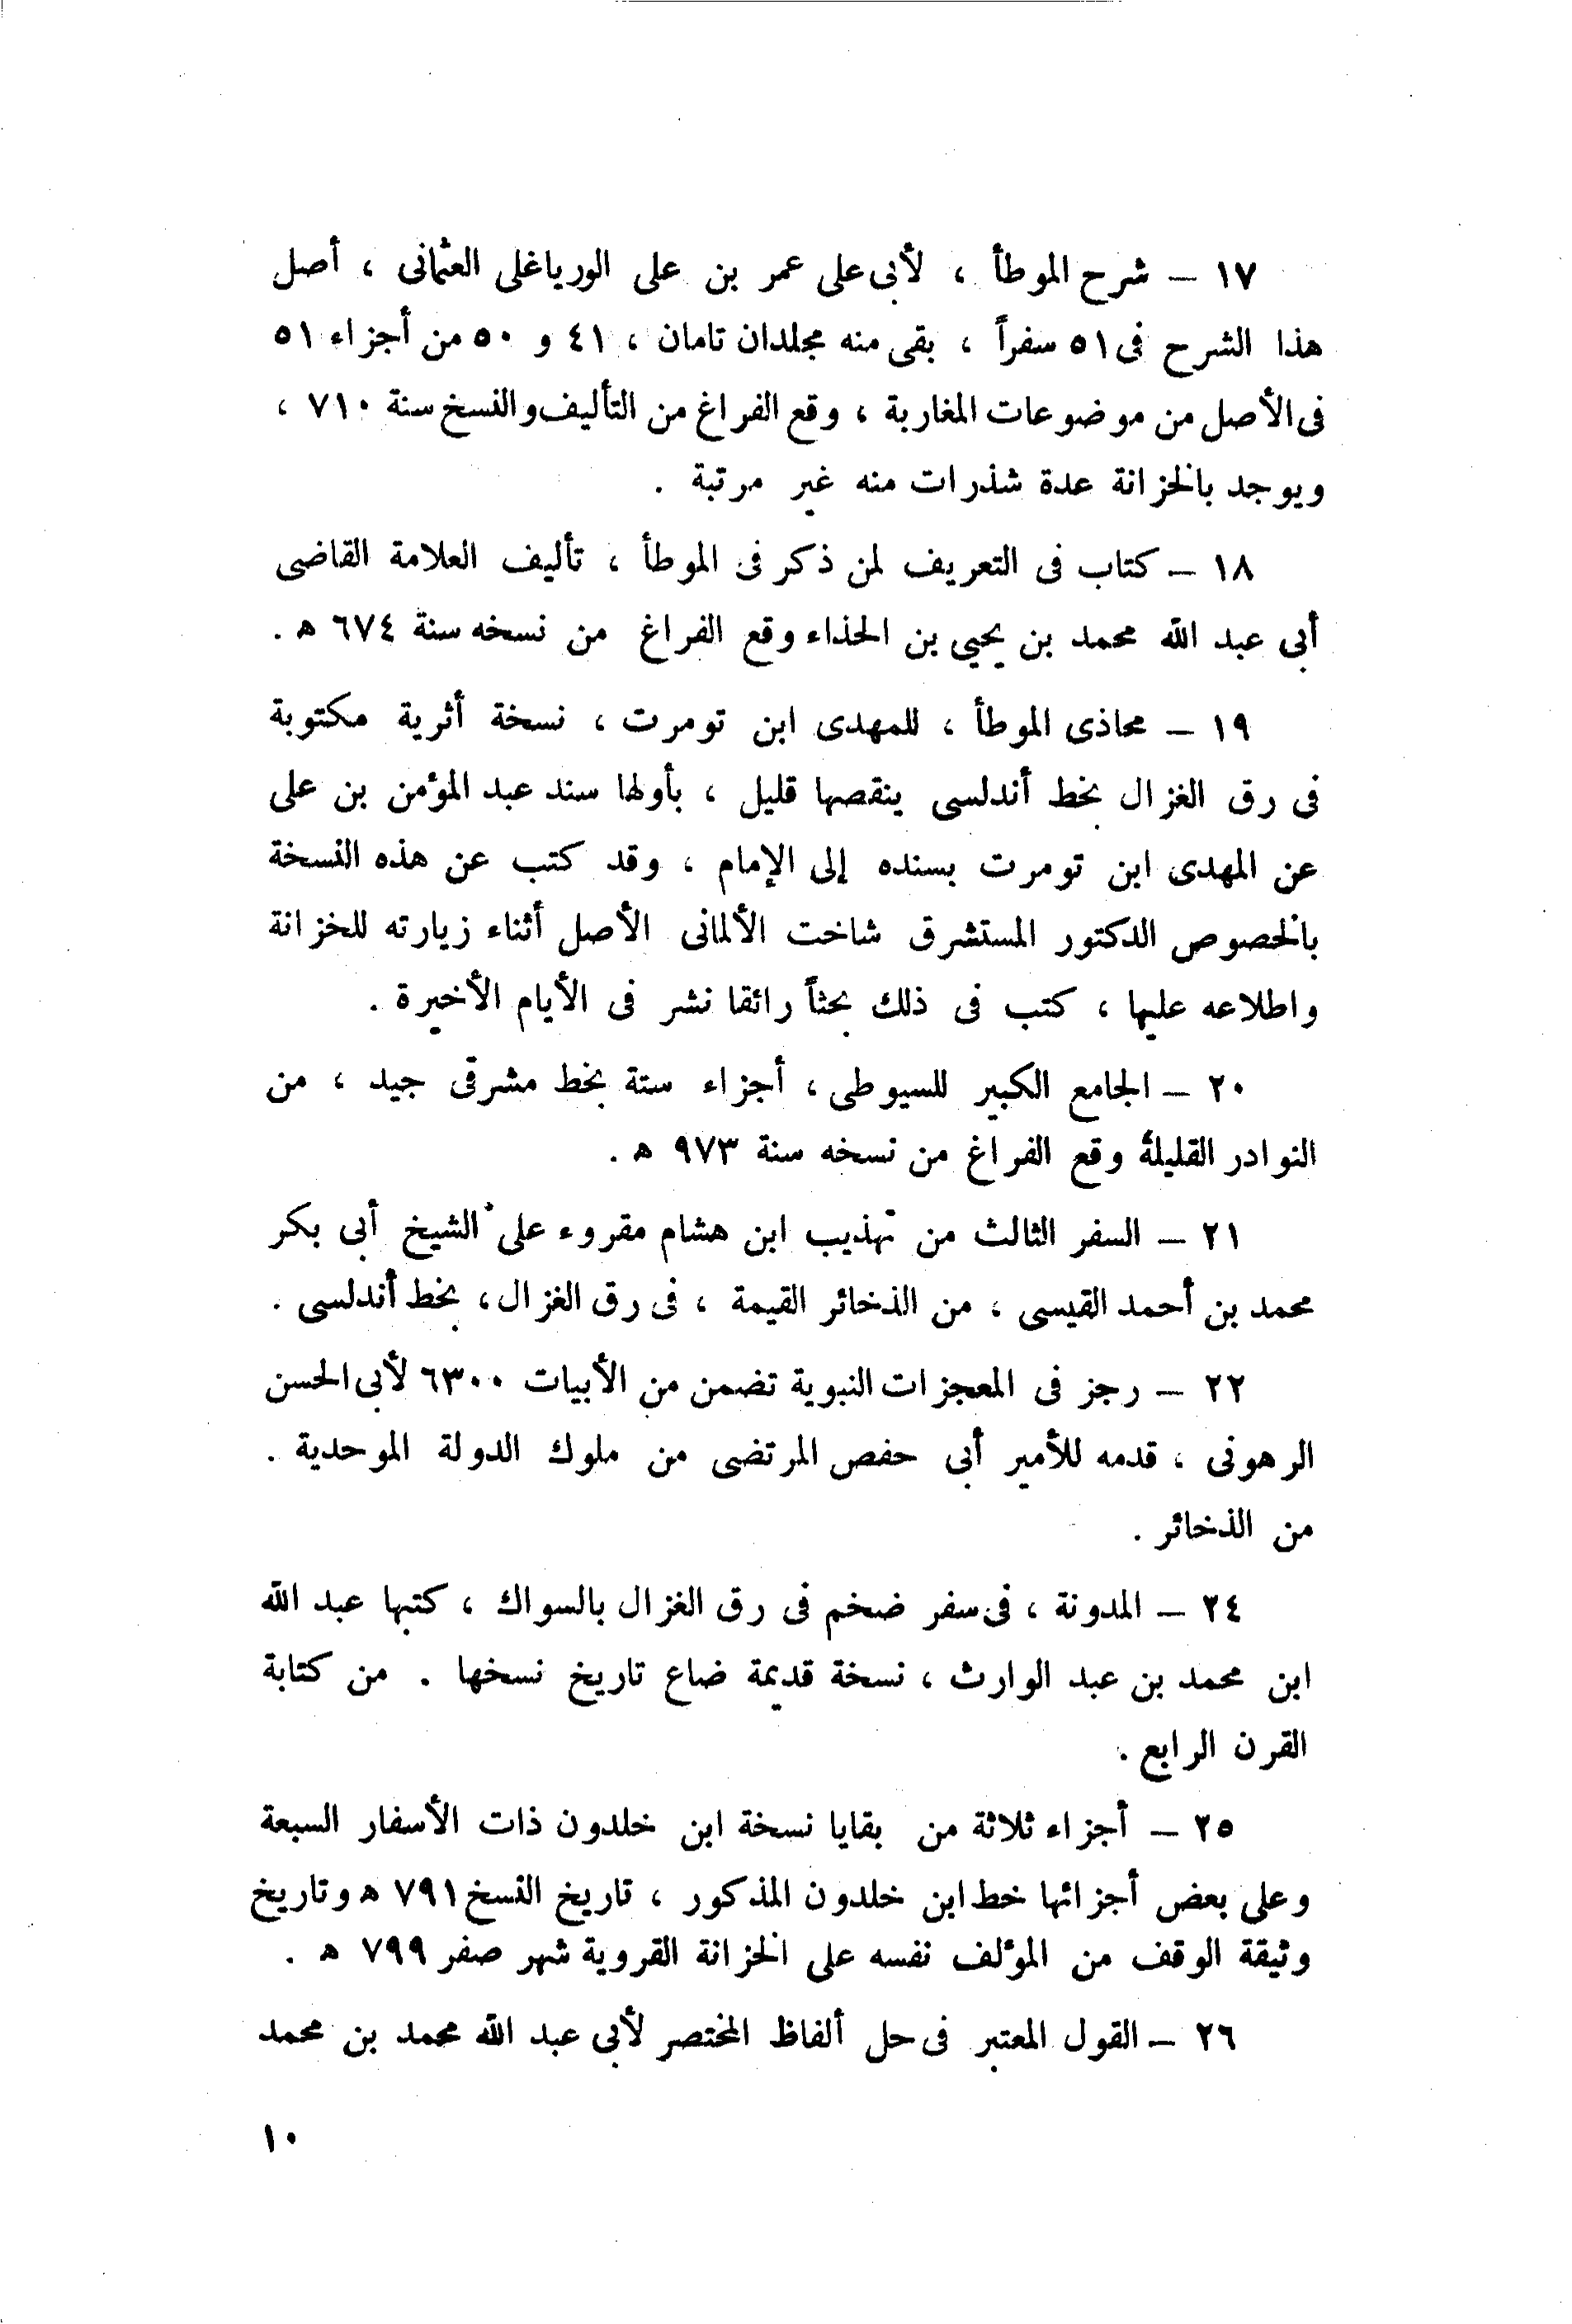 ١٧ – شرح الموطأ ، لأبى على عمر بن على الورياغلى العثمانى ، أصل
هذا الشرح فى ٥١ سفراً ، بقى منه مجلدان تامان ، ٤١ و ٥٠ من أجزاء ٥١
فى الأصل من موضوعات المغاربة ، وقع الفراغ من التأليف والنسخ سنة ٧١٠ ،
ويوجد بالخزانة عدة شذرات منه غير مرتبة .
١٨ – كتاب فى التعريف لمن ذكر فى الموطأ ، تأليف العلامة القاضى
أبى عبد الله محمد بن يحيى بن الحذاء وقع الفراغ من نسخه سنة ٦٧٤ ه .
١٩ – محاذى الموطأ ، للمهدى ابن تومرت ، نسخة أثرية مكتوبة
فى رق الغزال بخط أندلسى ينقصها قليل ، بأولها سند عبد المؤمن بن على
عن المهدى ابن تومرت بسنده إلى الإمام ، وقد كتب عن هذه النسخة
بالخصوص الدكتور المستشرق شاخت الألمانى الأصل أثناء زيارته للخزانة
واطلاعه عليها ، كتب فى ذلك بحثاً رائقا نشر فى الأيام الأخيرة .
٢٠ – الجامع الكبير للسيوطى ، أجزاء ستة بخط مشرقى جيد ، من
النوادر القليلة وقع الفراغ من نسخه سنة ٩٧٣ ه .
٢١ – السفر الثالث من تهذيب ابن هشام مقروء على الشيخ أبى بكر
محمد بن أحمد القيسى ، من الذخائر القيمة ، فى رق الغزال ، بخط أندلسى .
٢٢ – رجز فى المعجزات النبوية تضمن من الأبيات ٦٣٠٠ لأبى الحسن
الرهونى ، قدمه للأمير أبى حفص المرتضى من ملوك الدولة الموحدية .
من الذخائر .
٢٤ – المدونة ، فى سفر ضخم فى رق الغزال بالسواك ، كتبها عبد الله
ابن محمد بن عبد الوارث ، نسخة قديمة ضاع تاريخ نسخها . من كتابة
القرن الرابع .
٢٥ – أجزاء ثلاثة من بقايا نسخة ابن خلدون ذات الأسفار السبعة
وعلى بعض أجزائها خط ابن خلدون المذكور ، تاريخ النسخ ٧٩١ ه وتاريخ
وثيقة الوقف من المؤلف نفسه على الخزانة القروية شهر صفر ٧٩٩ ه .
٢٦ – القول المعتبر فى حل ألفاظ المختصر لأبى عبد الله محمد بن محمد
١٠